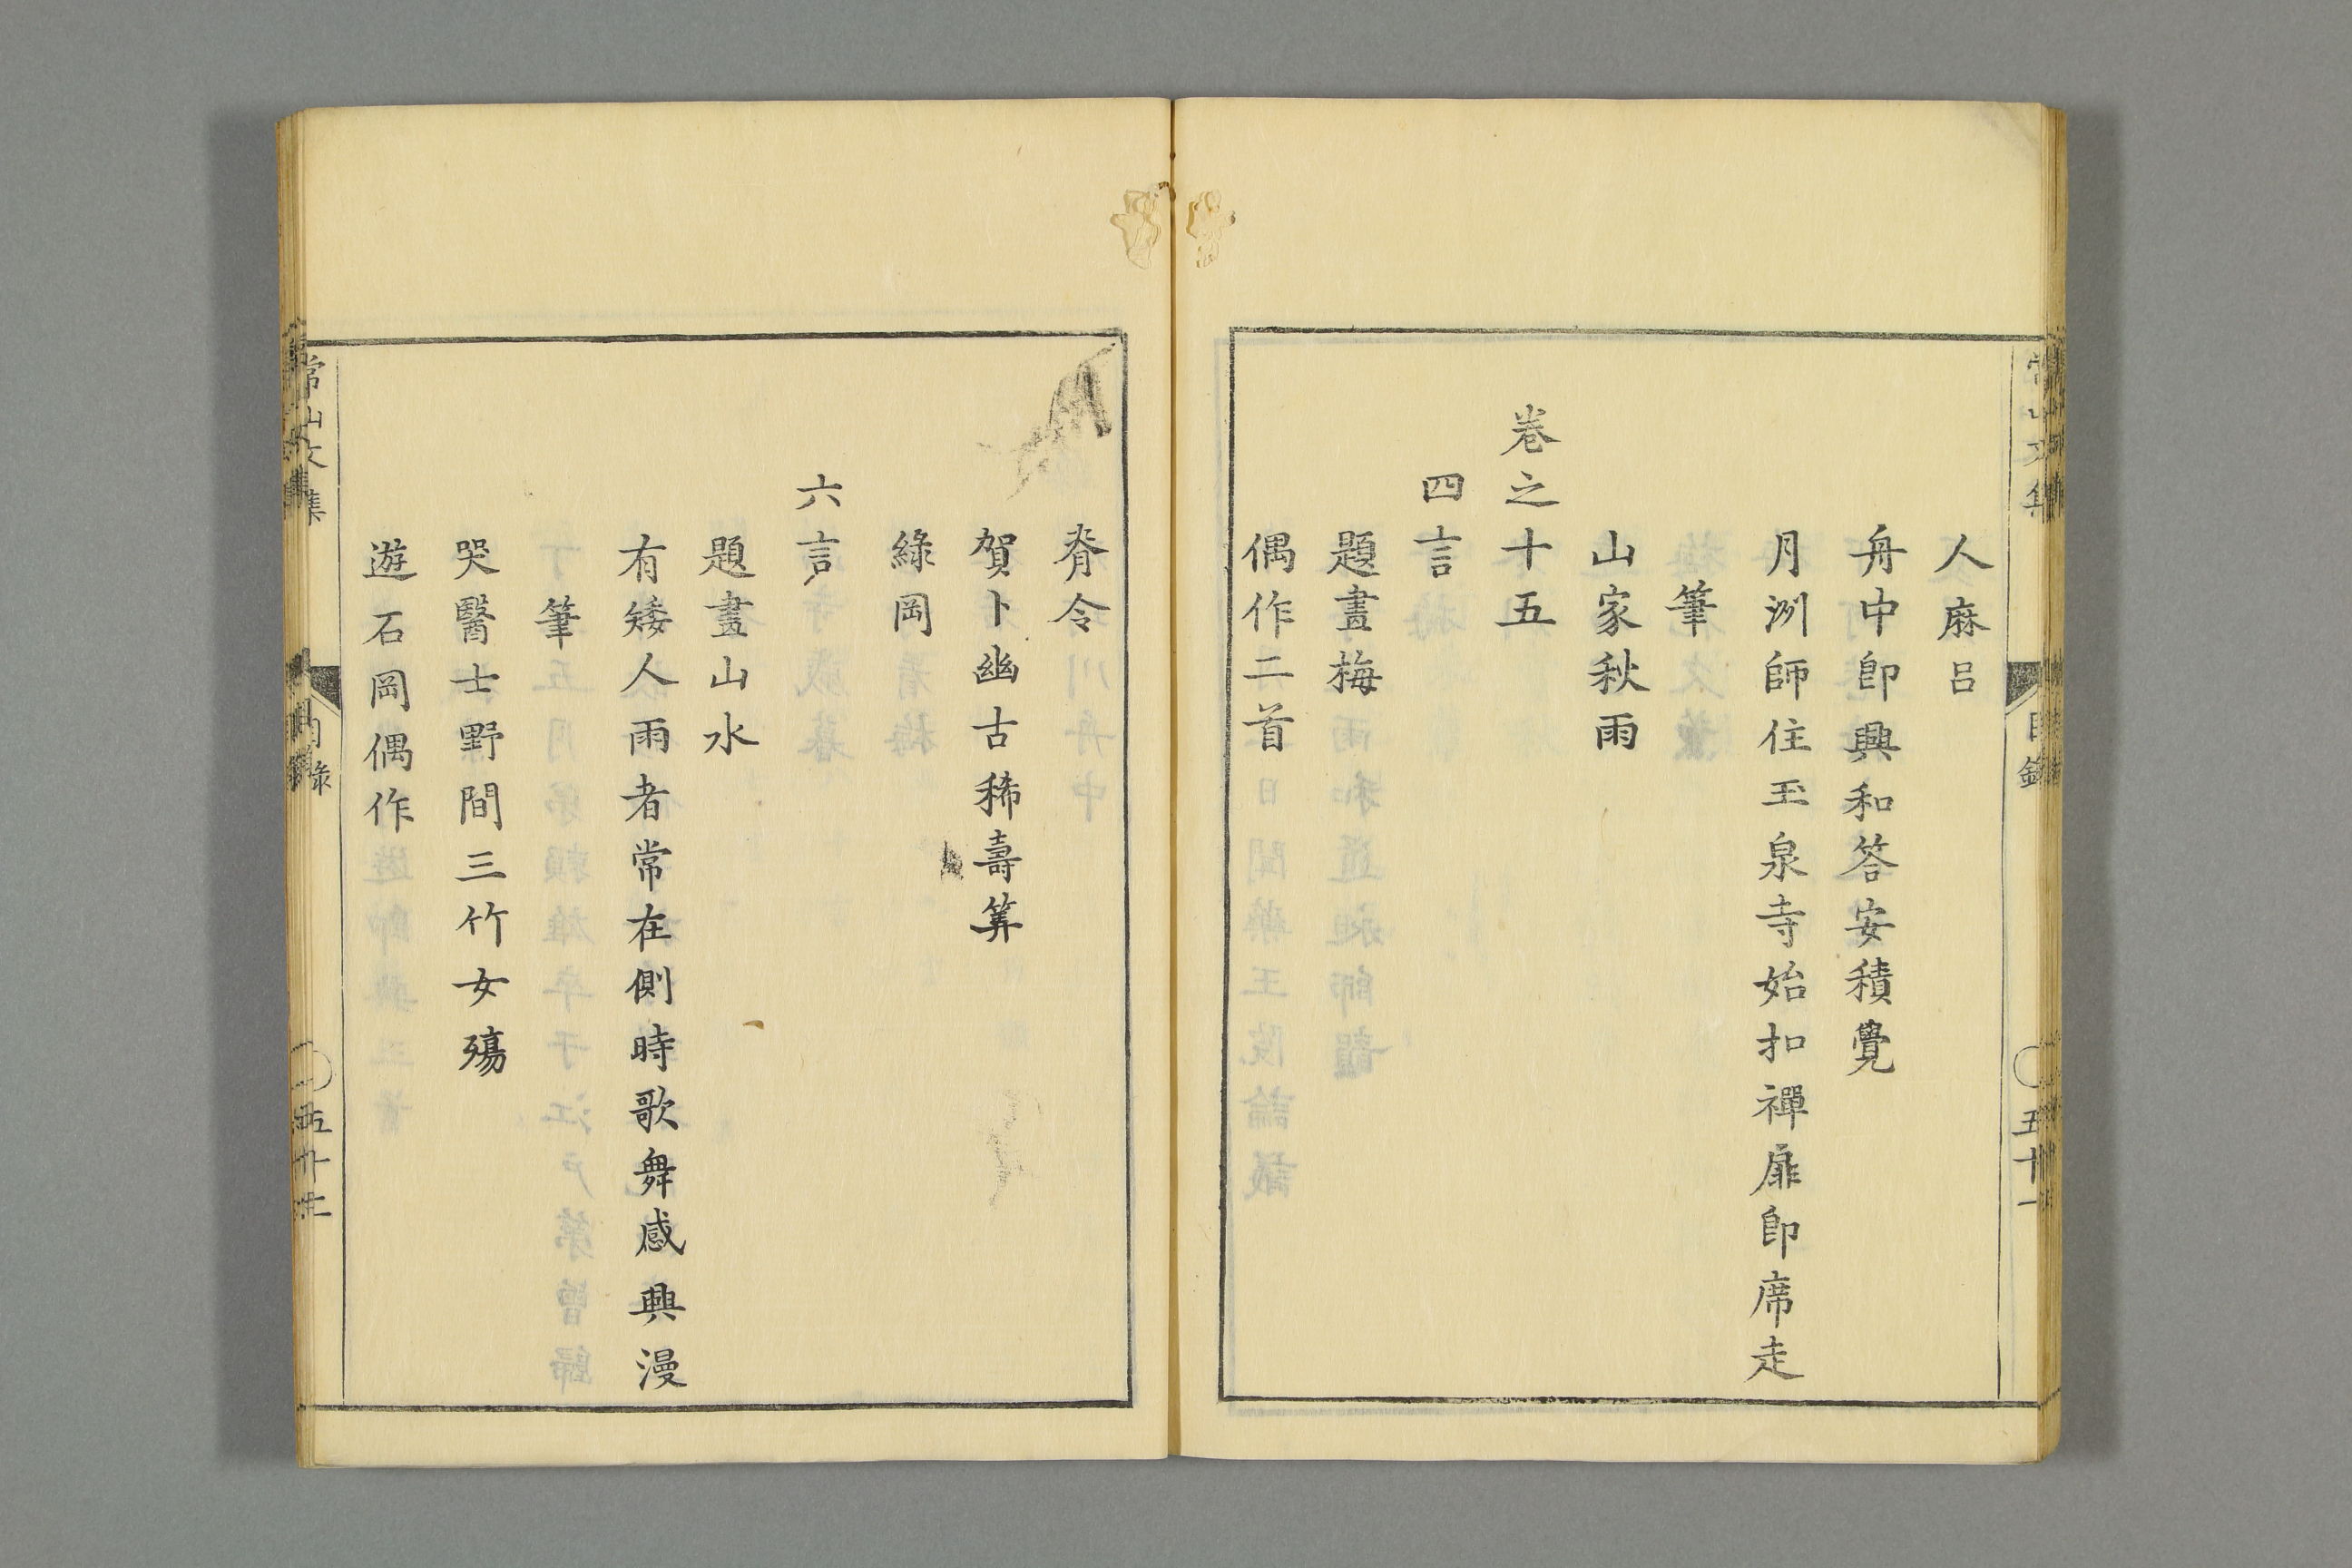 人麻呂
舟中卽興和答安積覺
月洲師住玉泉寺始扣禪扉卽席走
筆
山家秋雨
卷之十五
四言
題畫梅
偶作二首
脊令
賀卜幽古稀壽筭
綠岡
六言
題畫山水
有矮人雨者常在側時歌舞感興漫
筆
哭醫士野間三竹女殤
遊石岡偶作
常山文集
目錄